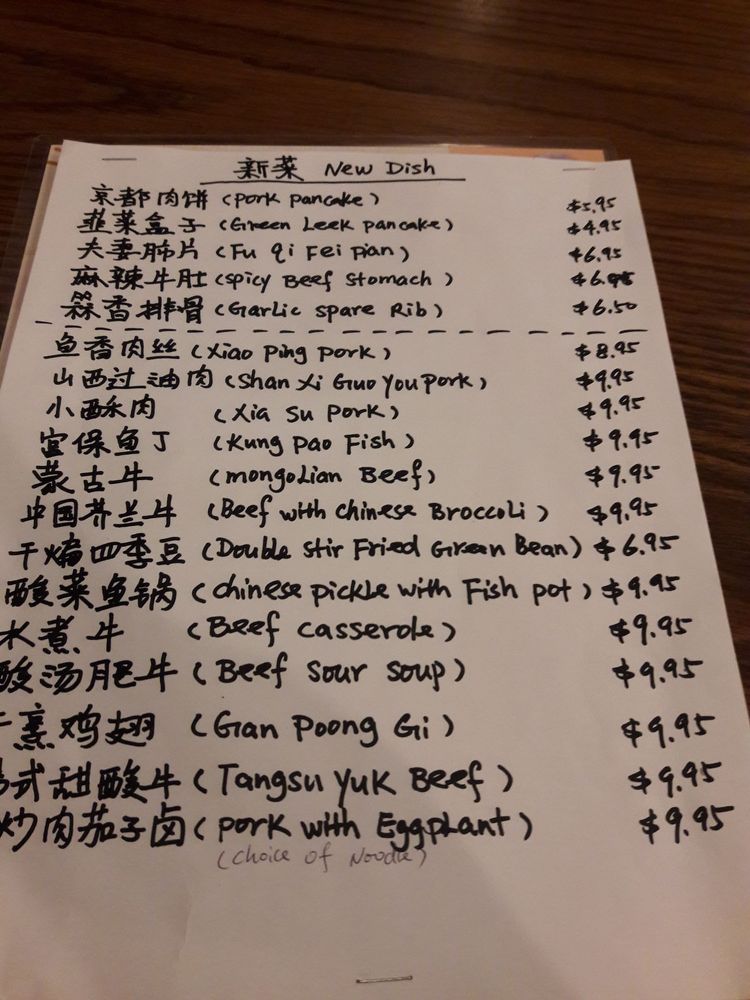 新菜 New Dish
京都肉饼 (pork pancake) $5.95
韭菜盒子 (Green Leek pancake) $4.95
夫妻肺片 (Fu Qi Fei pian) $6.95
麻辣牛肚 (spicy Beef Stomach) $6.95
蒜香排骨 (Garlic spare Rib) $6.50
鱼香肉丝 (Xiao Ping pork) $8.95
山西过油肉 (Shan Xi Guo You pork) $9.95
小酥肉 (Xia Su pork) $9.95
宫保鱼丁 (Kung Pao Fish) $9.95
蒙古牛 (mongolian Beef) $9.95
中国芥兰牛 (Beef with chinese Broccoli) $9.95
干煸四季豆 (Double stir Fried Green Bean) $6.95
酸菜鱼锅 (chinese pickle with Fish pot) $9.95
水煮牛 (Beef casserole) $9.95
酸汤肥牛 (Beef sour soup) $9.95
烹鸡翅 (Gan Poong Gi) $9.95
式甜酸牛 (Tangsu Yuk Beef) $9.95
炒肉茄子卤 (pork with Eggplant) $9.95
(choice of Noodle)